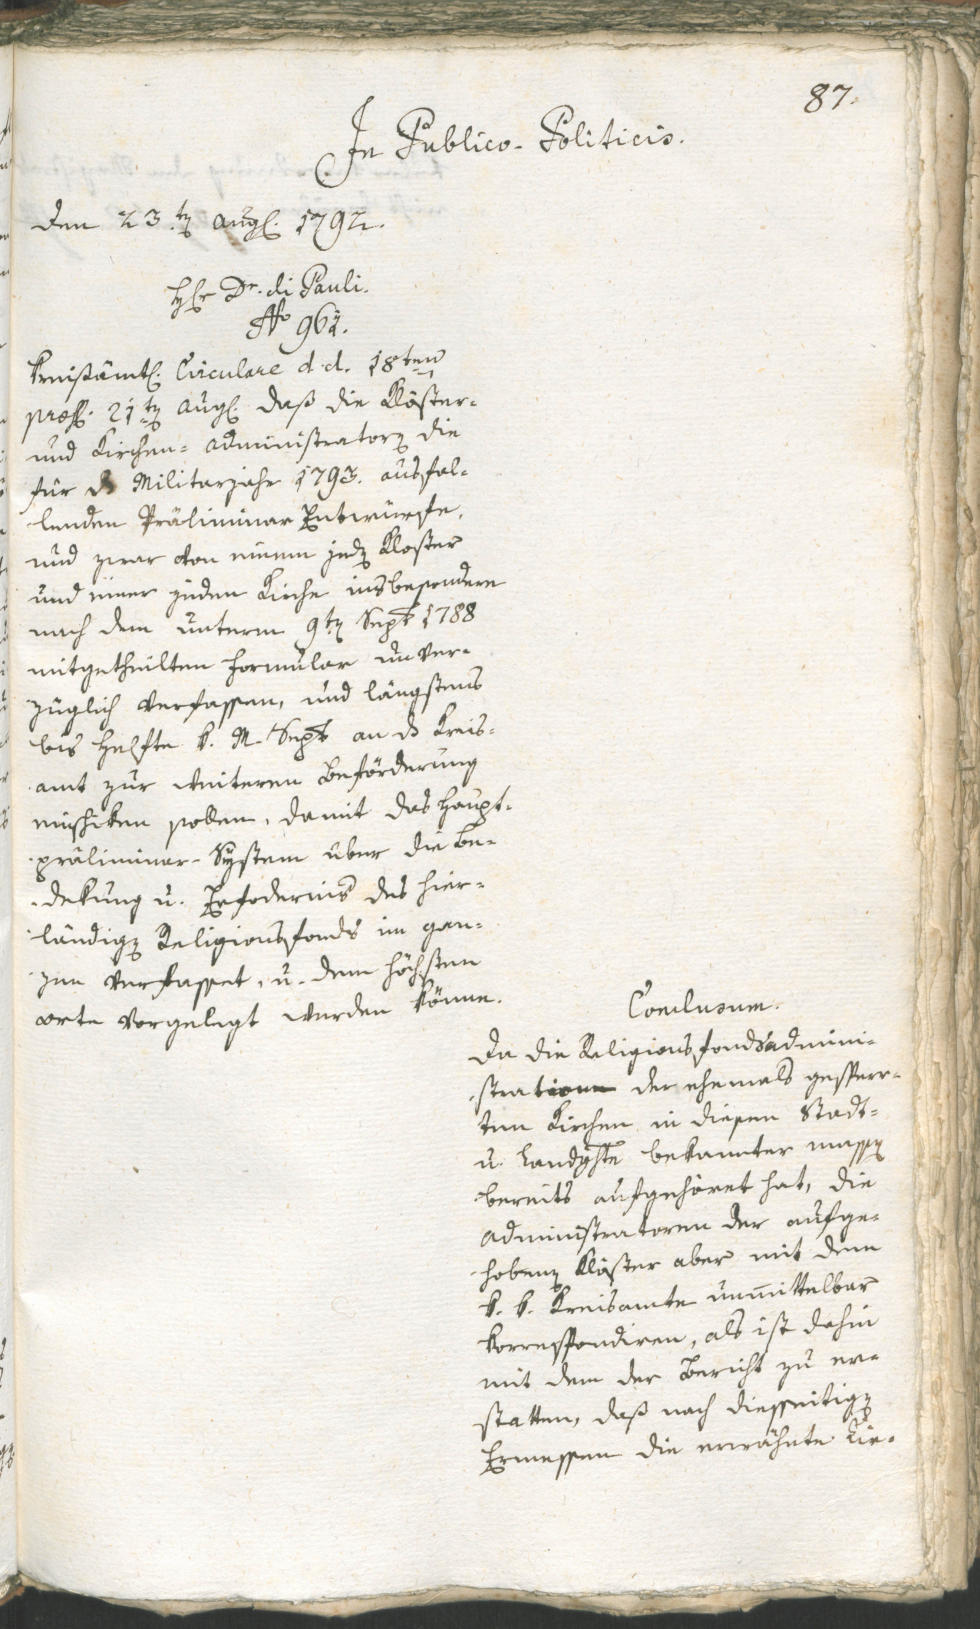 87.
In Publico-Politicis.
den 23.ten Augs. 1792.
Hr. Dr. di Pauli.
No 961.
Kreisämtl. Circulare d. d. 18ten
præs. 21ten Augs. daß die Klöster-
und Kirchen-Administratoren die
für das Militarjahr 1793. ausfal-
lenden Präliminar Entwürfe,
und zwar von einem jeden Kloster
und einer jeden Kirche insbesondere
nach dem unterm 9ten Sept 1788
mitgetheilten Formular unver-
züglich verfassen, und längstens
bis Helfte k. M. Sept an das Kreis-
amt zur weiteren Beförderung
einschiken sollen, damit das Haupt-
präliminar-System über die Be-
dekung u. Erfoderniß des hier-
ländigen Religionsfonds im gan-
zen verfasset, u. dem höchsten
Orte vorgelegt werden könne.
Conclusum.
Da die Religionsfondsadmini-
stration der ehemals gesperr-
ten Kirchen in diesen Stadt-
u. Landghte bekannter massen
bereits aufgehöret hat, die
Administratoren der aufge-
hobenen Klöster aber mit dem
k. k. Kreisamte unmittelbar
korrespondiren, als ist dahin
mit dem der Bericht zu er-
statten, daß nach diesseitigen
Ermessen die erwähnte Cir-